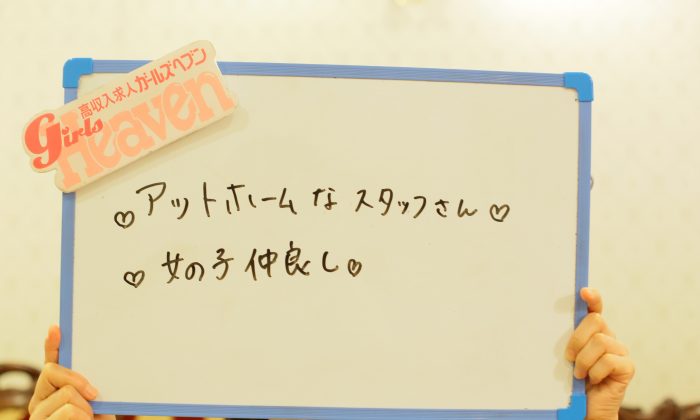 高収入求人ガールズヘブン
girls
Heaven
♡アットホームなスタッフさん♡
♡女の子仲良し♡